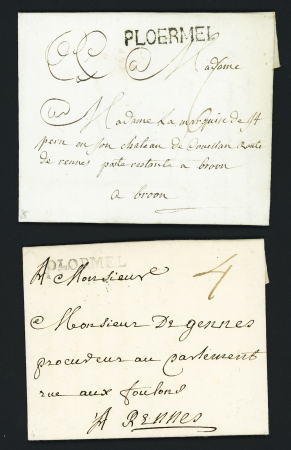 PLOERMEL
A Madame
Madame La marquise de St
pern en son chateau de Couellan Route
de rennes poste restante a broon
a broon
PLOERMEL
A Monsieur
4
Monsieur De gennes
procureur au parlement
rue aux foulons
A RENNES